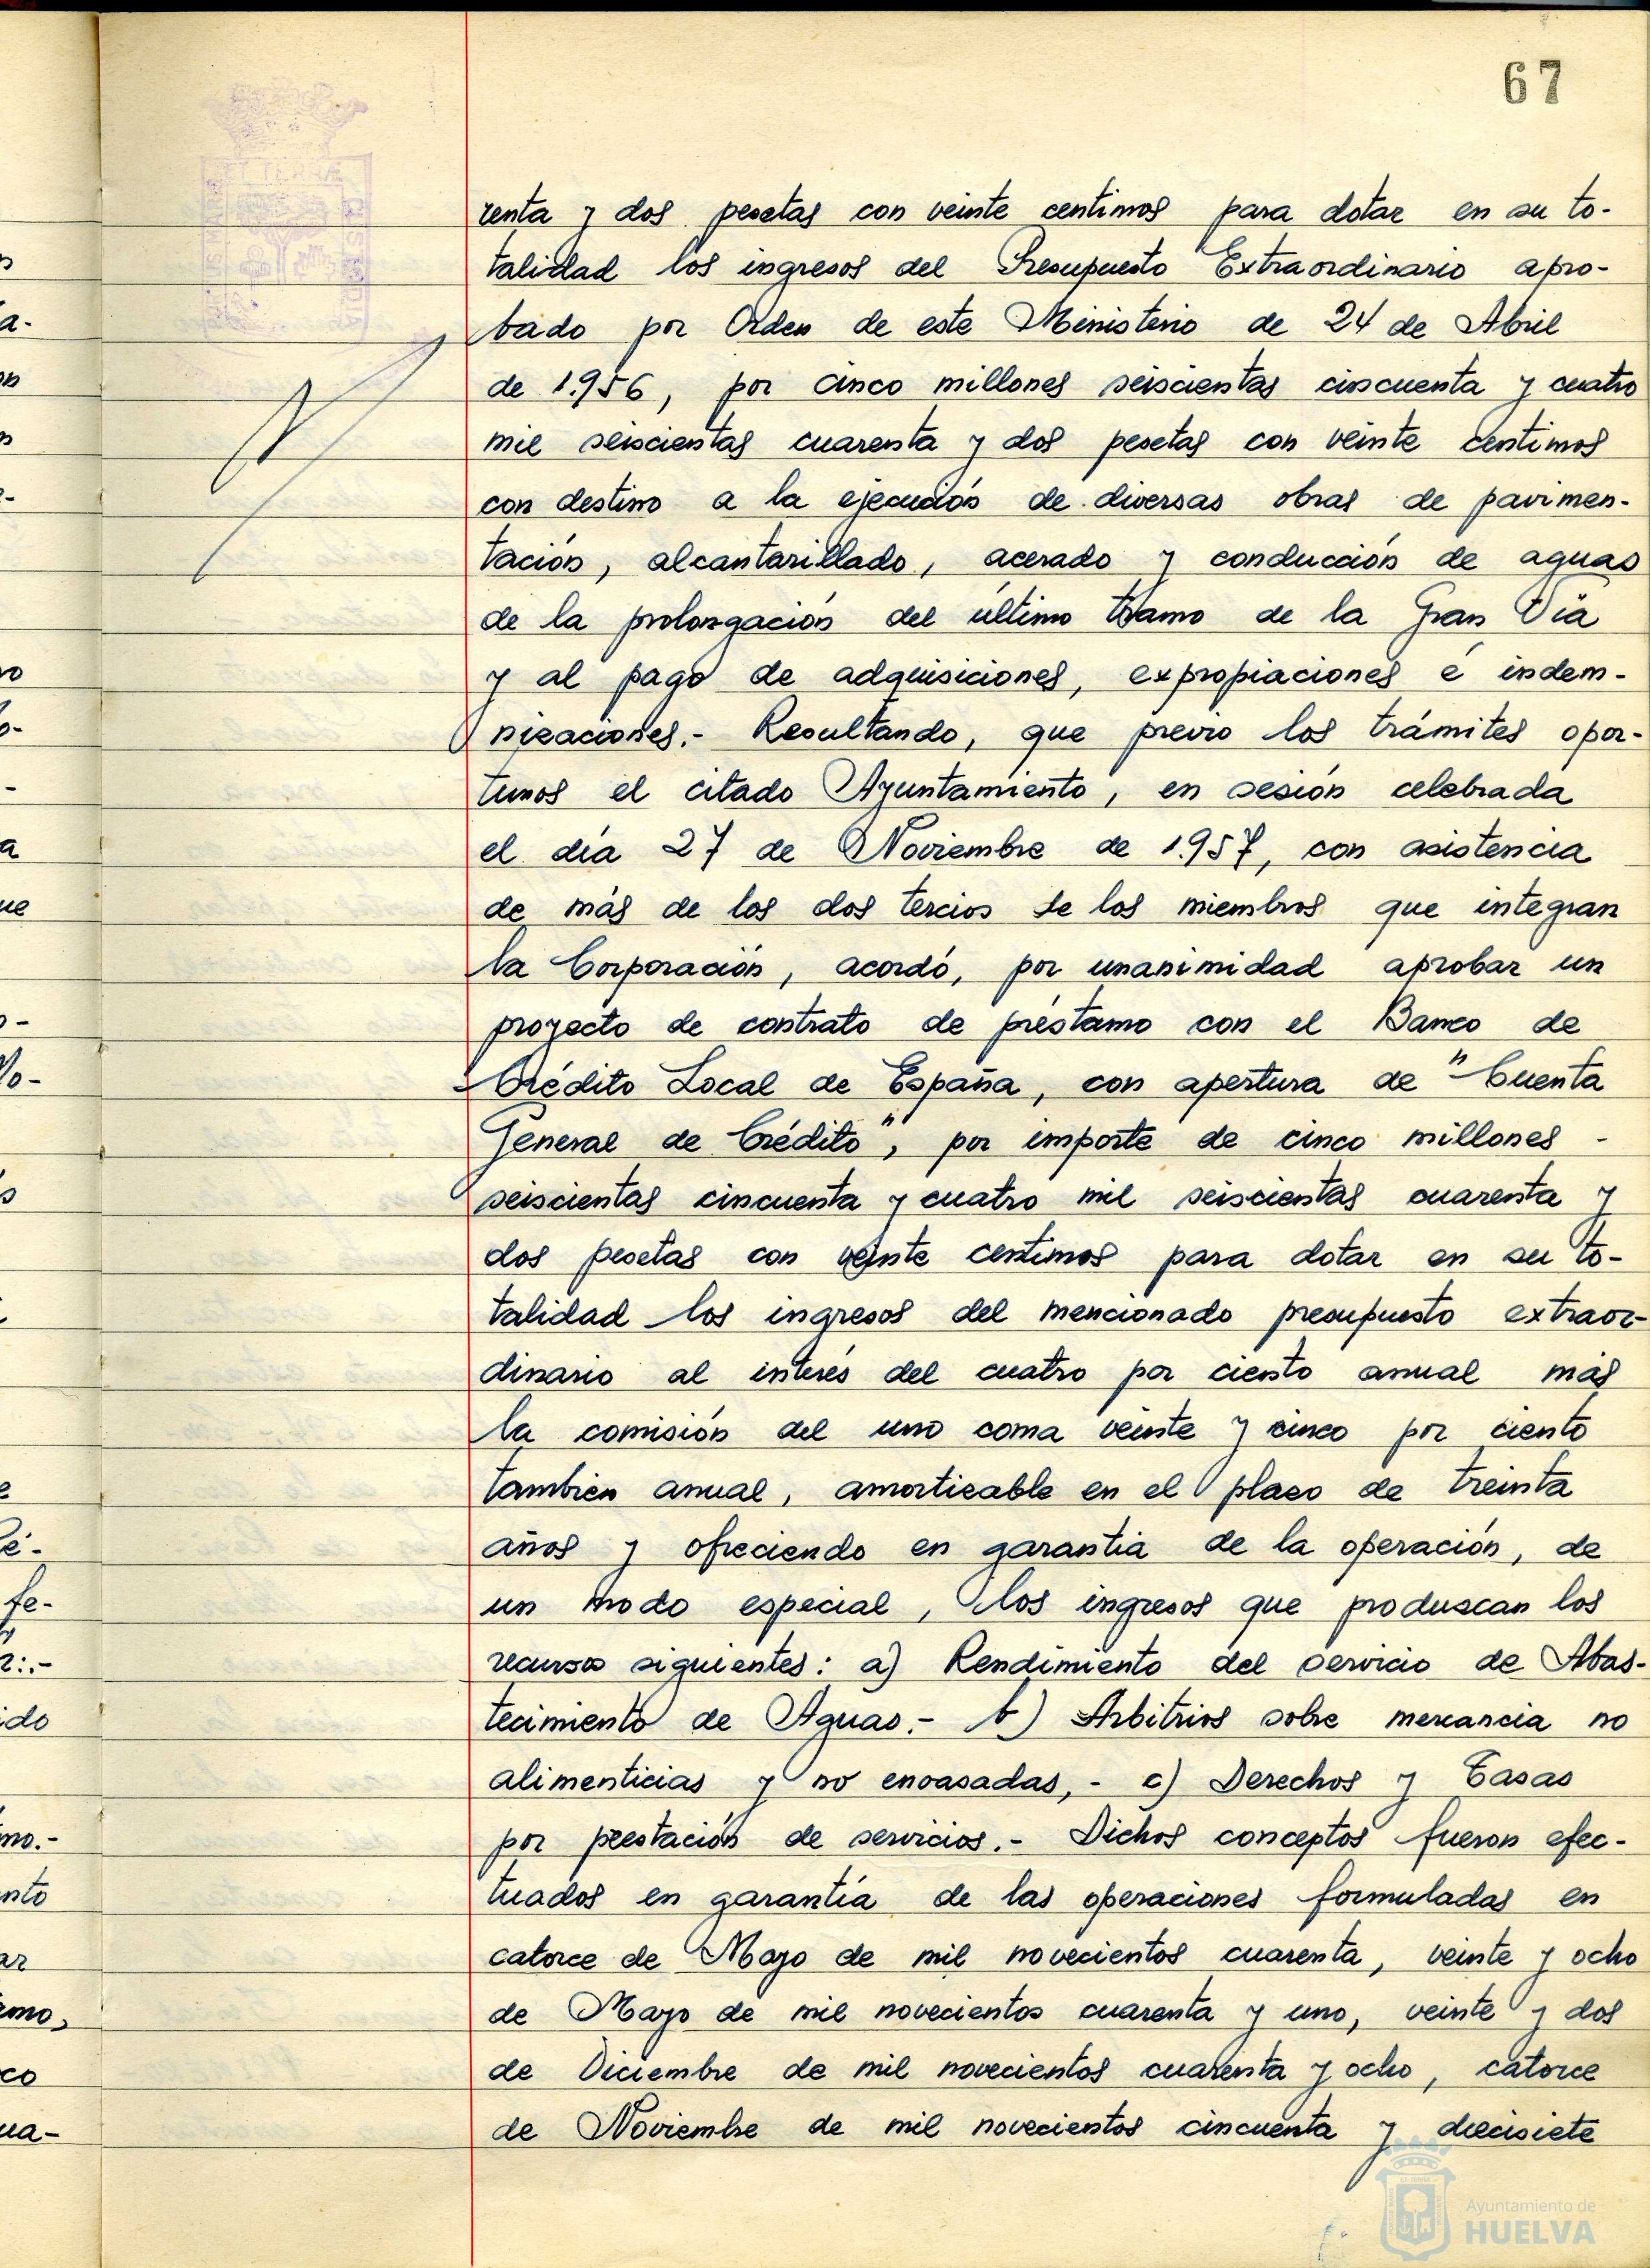 67
renta y dos pesetas con veinte centimos para dotar en su to-
talidad los ingresos del Presupuesto Extraordinario apro-
bado por Orden de este Ministerio de 24 de Abril
de 1.956, por cinco millones seiscientas cincuenta y cuatro
mil seiscientas cuarenta y dos pesetas con veinte centimos
con destino a la ejecución de diversas obras de pavimen-
tación, alcantarillado, acerado y conducción de aguas
de la prolongación del último tramo de la Gran Vía
y al pago de adquisiciones, expropiaciones é indem-
nizaciones.- Resultando, que previo los trámites opor-
tunos el citado Ayuntamiento, en sesión celebrada
el día 27 de Noviembre de 1.957, con asistencia
de más de los dos tercios de los miembros que integran
la Corporación, acordó, por unanimidad aprobar un
proyecto de contrato de préstamo con el Banco de
Crédito Local de España, con apertura de "Cuenta
General de Crédito", por importe de cinco millones -
seiscientas cincuenta y cuatro mil seiscientas cuarenta y
dos pesetas con veinte centimos para dotar en su to-
talidad los ingresos del mencionado presupuesto extraor-
dinario al interés del cuatro por ciento anual más
la comisión del uno coma veinte y cinco por ciento
tambien anual, amortizable en el plazo de treinta
años y ofreciendo en garantia de la operación, de
un modo especial, los ingresos que produzcan los
recursos siguientes: a) Rendimiento del servicio de Abas-
tecimiento de Aguas.- b) Arbitrios sobre mercancia no
alimenticias y no envasadas,- c) Derechos y Tasas
por prestación de servicios.- Dichos conceptos fueron efec-
tuados en garantía de las operaciones formuladas en
catorce de Mayo de mil novecientos cuarenta, veinte y ocho
de Mayo de mil novecientos cuarenta y uno, veinte y dos
de Diciembre de mil novecientos cuarenta y ocho, catorce
de Noviembre de mil novecientos cincuenta y diecisiete
Ayuntamiento de
HUELVA